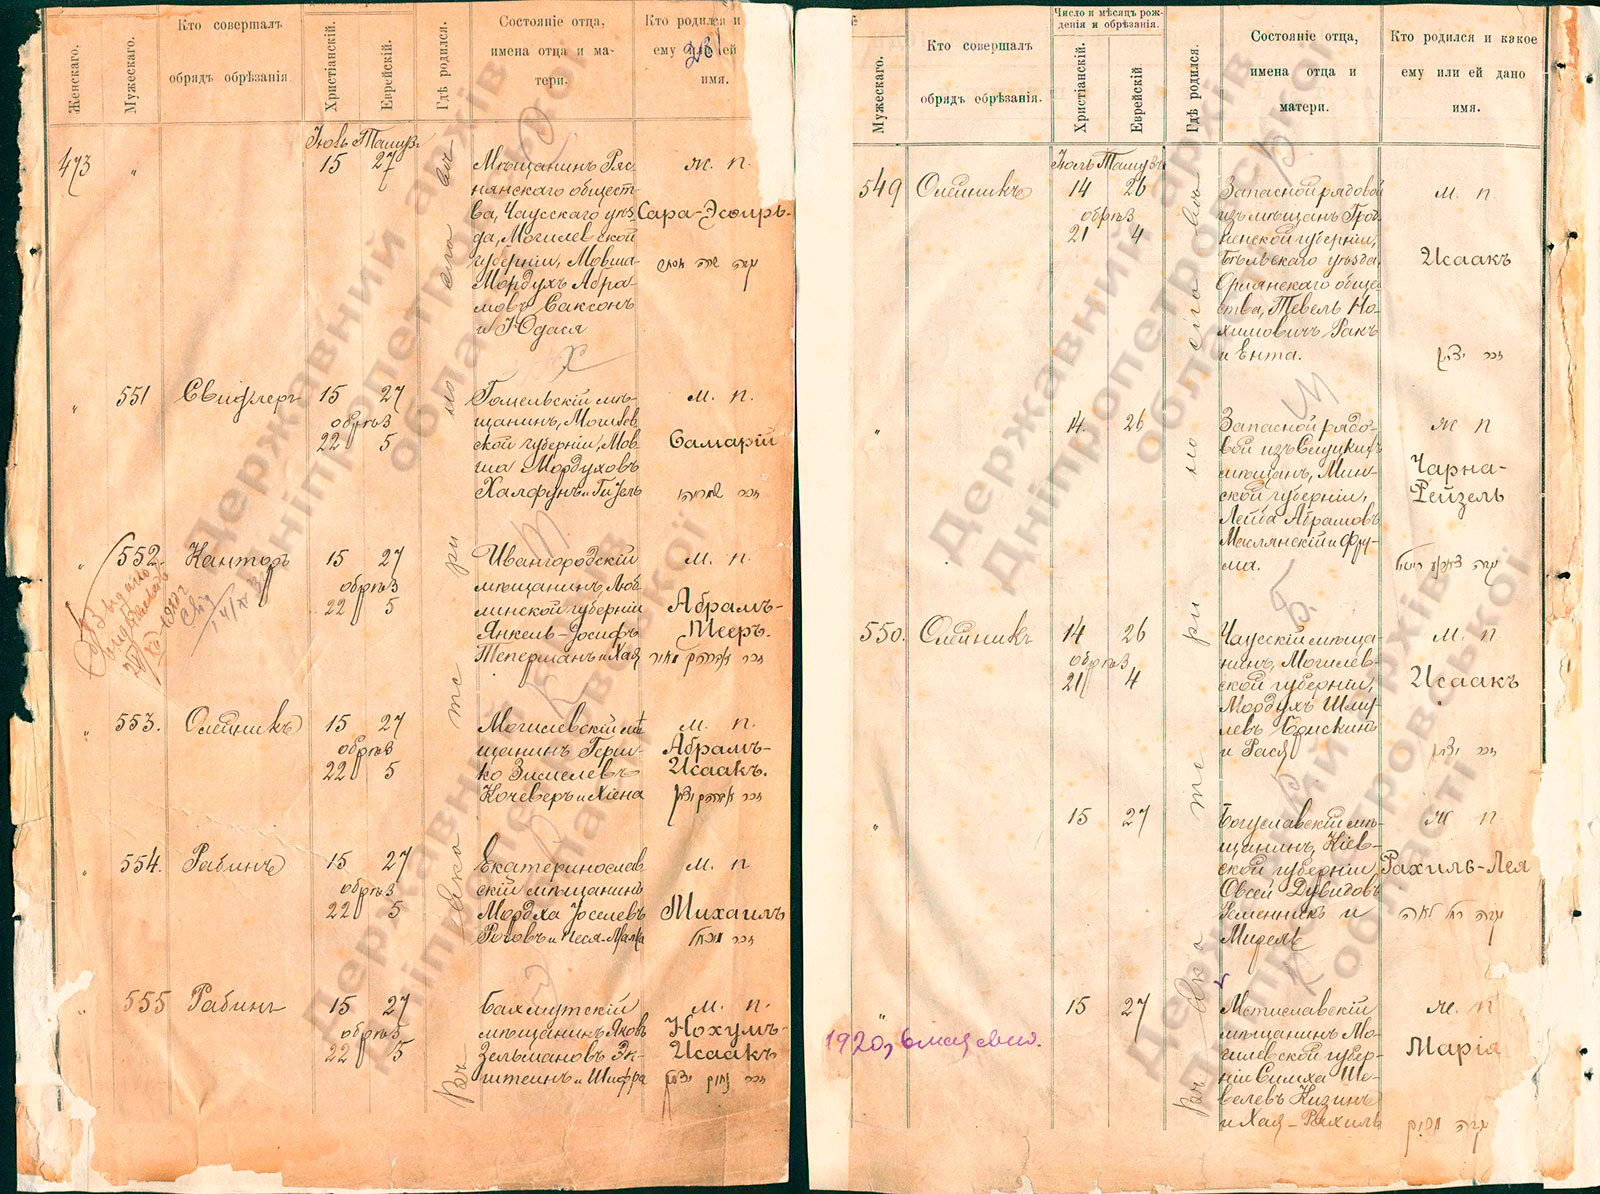 Женскаго.
Мужескаго.
Кто совершалъ
обрядъ обрѣзанія
Христіанскій.
Еврейскій.
Гдѣ родился.
Состояніе отца,
имена отца и ма-
тери.
Кто родился и
ему
ей
имя.
Іюль Тамузъ
473 " 15 27
Мѣщанинъ Ряс-
нянскаго общест-
ва, Чаусскаго уѣз-
да, Могилевской
губерніи, Мовша-
Мордухъ Абра-
мовъ Саксонъ
и Юдася
ж. п.
Сара-Эсѳирь.
" 551 Свидлеръ 15 27
обрѣз
22 5
Гомельскій мѣ-
щанинъ, Могилев
ской губерніи, Мов
ша Мордуховъ
Халфунъ и Гизель
м. п.
Самарій
זכר
" 552. Канторъ 15 27
обрѣз
22 5
Ивангородскій
мѣщанинъ, Люб-
линской губерніи
Янкель-Іосифъ
Теперманъ и Хая
м. п.
Абрамъ-
Мееръ.
זכר אברהם מאיר
" 553. Олейникъ 15 27
обрѣз
22 5
Могилевскій мѣ
щанинъ Герш-
ко Зиселевъ
Кочеверъ и Хіена
м. п.
Абрамъ-
Исаакъ.
זכר אברהם יצחק
" 554. Рабинъ 15 27
обрѣз
22 5
Екатеринослав
скій мѣщанинъ
Мордха Іоселевъ
Роговъ и Песя-Малка
м. п
Михаилъ
זכר מיכאל
555 Рабинъ 15 27
обрѣз
22 5
Бахмутскій
мѣщанинъ Яковъ
Зельмановъ Эп-
штеинъ и Шифра
м. п.
Нохумъ-
Исаакъ
זכר נחום יצחק
Мужескаго.
Кто совершалъ
обрядъ обрѣзанія.
Число и мѣсяцъ рож-
денія и обрѣзанія.
Христіанскій.
Еврейскій
Гдѣ родился.
Состояніе отца,
имена отца и
матери.
Кто родился и какое
ему или ей дано
имя.
Іюль Тамузъ
549 Олейникъ 14 26
обрѣз
21 4
Запасной рядовой
изъ мѣщанъ Грод-
ненской губерніи,
Бѣльскаго уѣзда,
Орлянскаго обще-
ства, Тевель Но-
химовичъ Ракъ
и Ента.
м. п
Исаакъ
זכר יצחק
" 14. 26
Запасной рядо-
вой изъ Слуцкихъ
мѣщанъ, Мин-
ской губерніи,
Лейба Абрамовъ
Маслянскій и Фру-
ма.
ж п
Чарна-
Рейзель
550. Олейникъ 14 26
обрѣз
21 4
Чаусскій мѣща-
нинъ, Могилев-
ской губерніи,
Мордухъ Шму-
левъ Брискинъ
и Рася
м. п
Исаакъ
זכר יצחק
" 15 27
Богуславскій мѣ-
щанинъ, Кіев-
ской губерніи
Овсей Дувидовъ
Ременникъ и
Мирель
ж п
Рахиль-Лея
נקבה רחל לאה
" 15 27
Мстиславскій
мѣщанинъ Мо-
гилевской губер-
ніи Симха Ше-
велевъ Кизинъ
и Хая-Рахиль
ж. п
Марія
1920,
Державний архів
Дніпропетровської
області